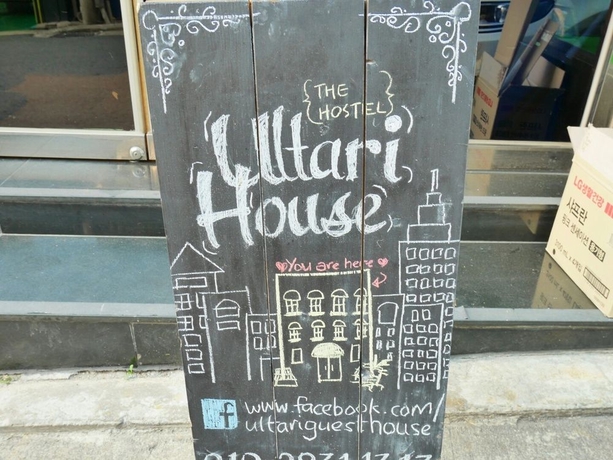 {THE
HOSTEL}
Ultari
House
You are here
f www.facebook.com/
ultariguesthouse
LG생활건강
샤프란